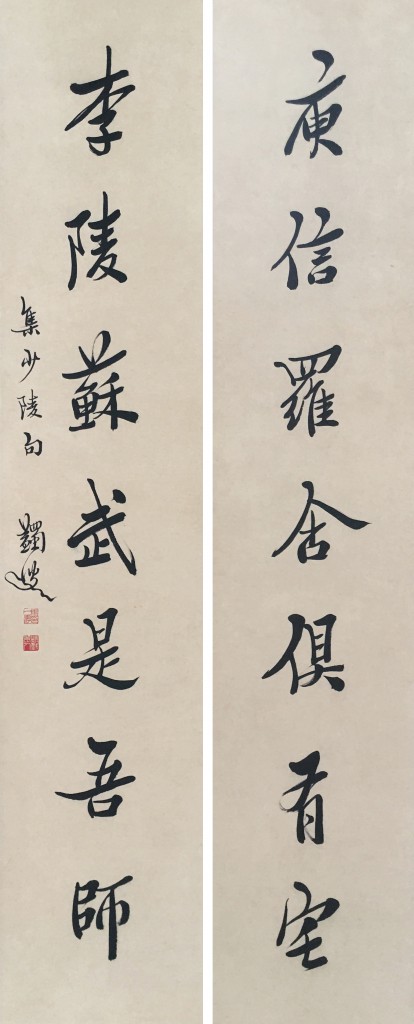 庾信羅含俱有宅
李陵蘇武是吾師
集少陵句
蠲叟